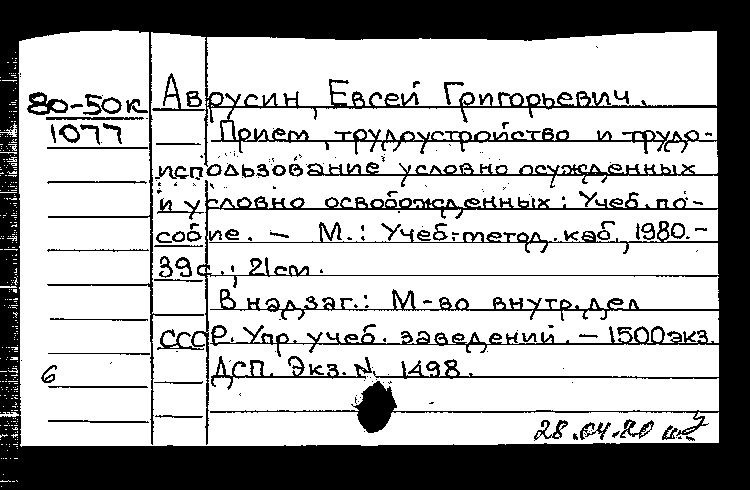 80-50к
1077
Аврусин, Евсей Григорьевич.
Прием, трудоустройство и трудо-
использование условно осужденных
и условно освобожденных: Учеб. по-
собие. – М.: Учеб.-метод. каб., 1980.-
39с.; 21см.
В надзаг.: М-во внутр. дел
СССР. Упр. учеб. заведений. – 1500экз.
ДСП. Экз. N 1498.
6
28.04.80